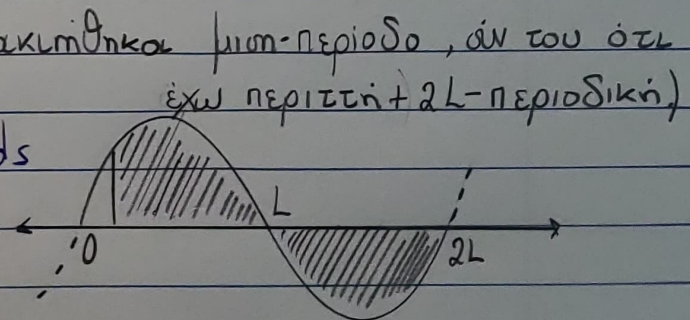 ακινήθηκα μιση-περίοδο, συν του ότι
έχω περιττή + 2L-περιοδική)
ds
L
0
2L